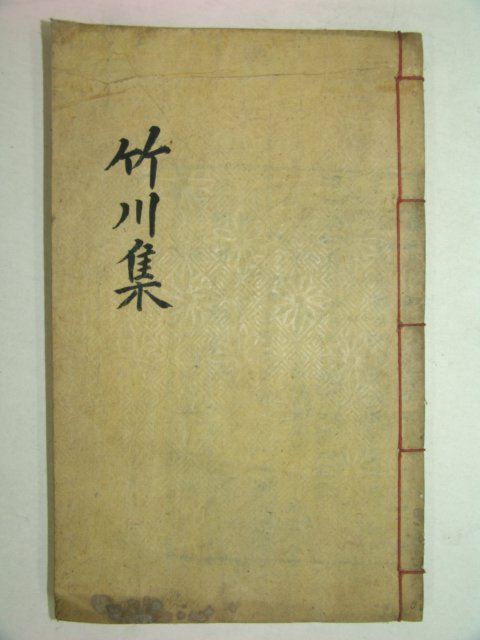 竹川集